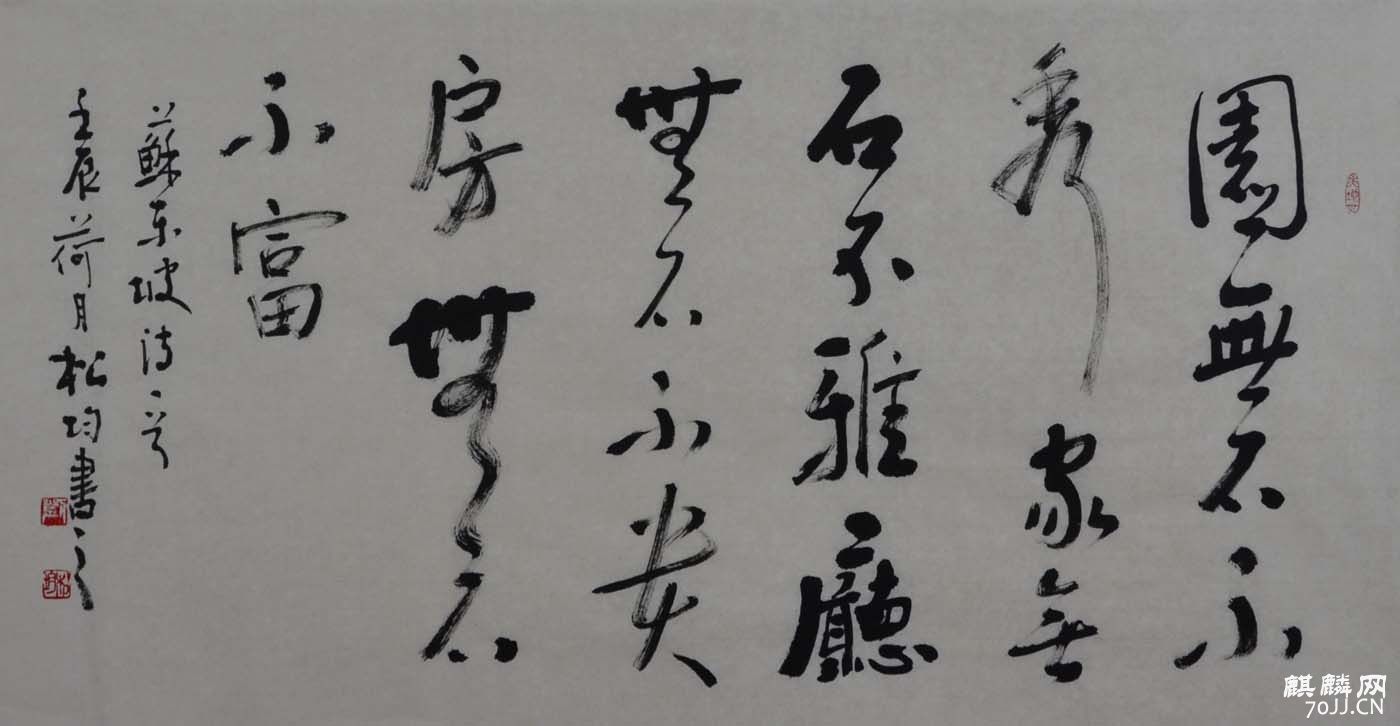 園無石不
秀家無
石不雅廳
無石不貴
房無石
不富
蘇東坡詩一首
壬辰荷月松均書之
麒麟网
70JJ.CN